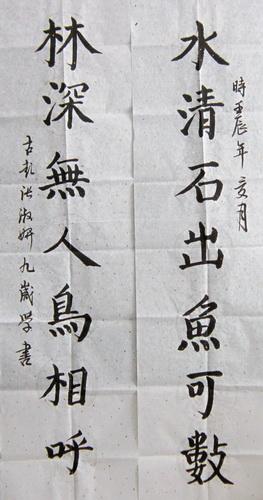 時壬辰年亥月
水清石出魚可數
林深無人鳥相呼
古彭洪淑妍九歲學書